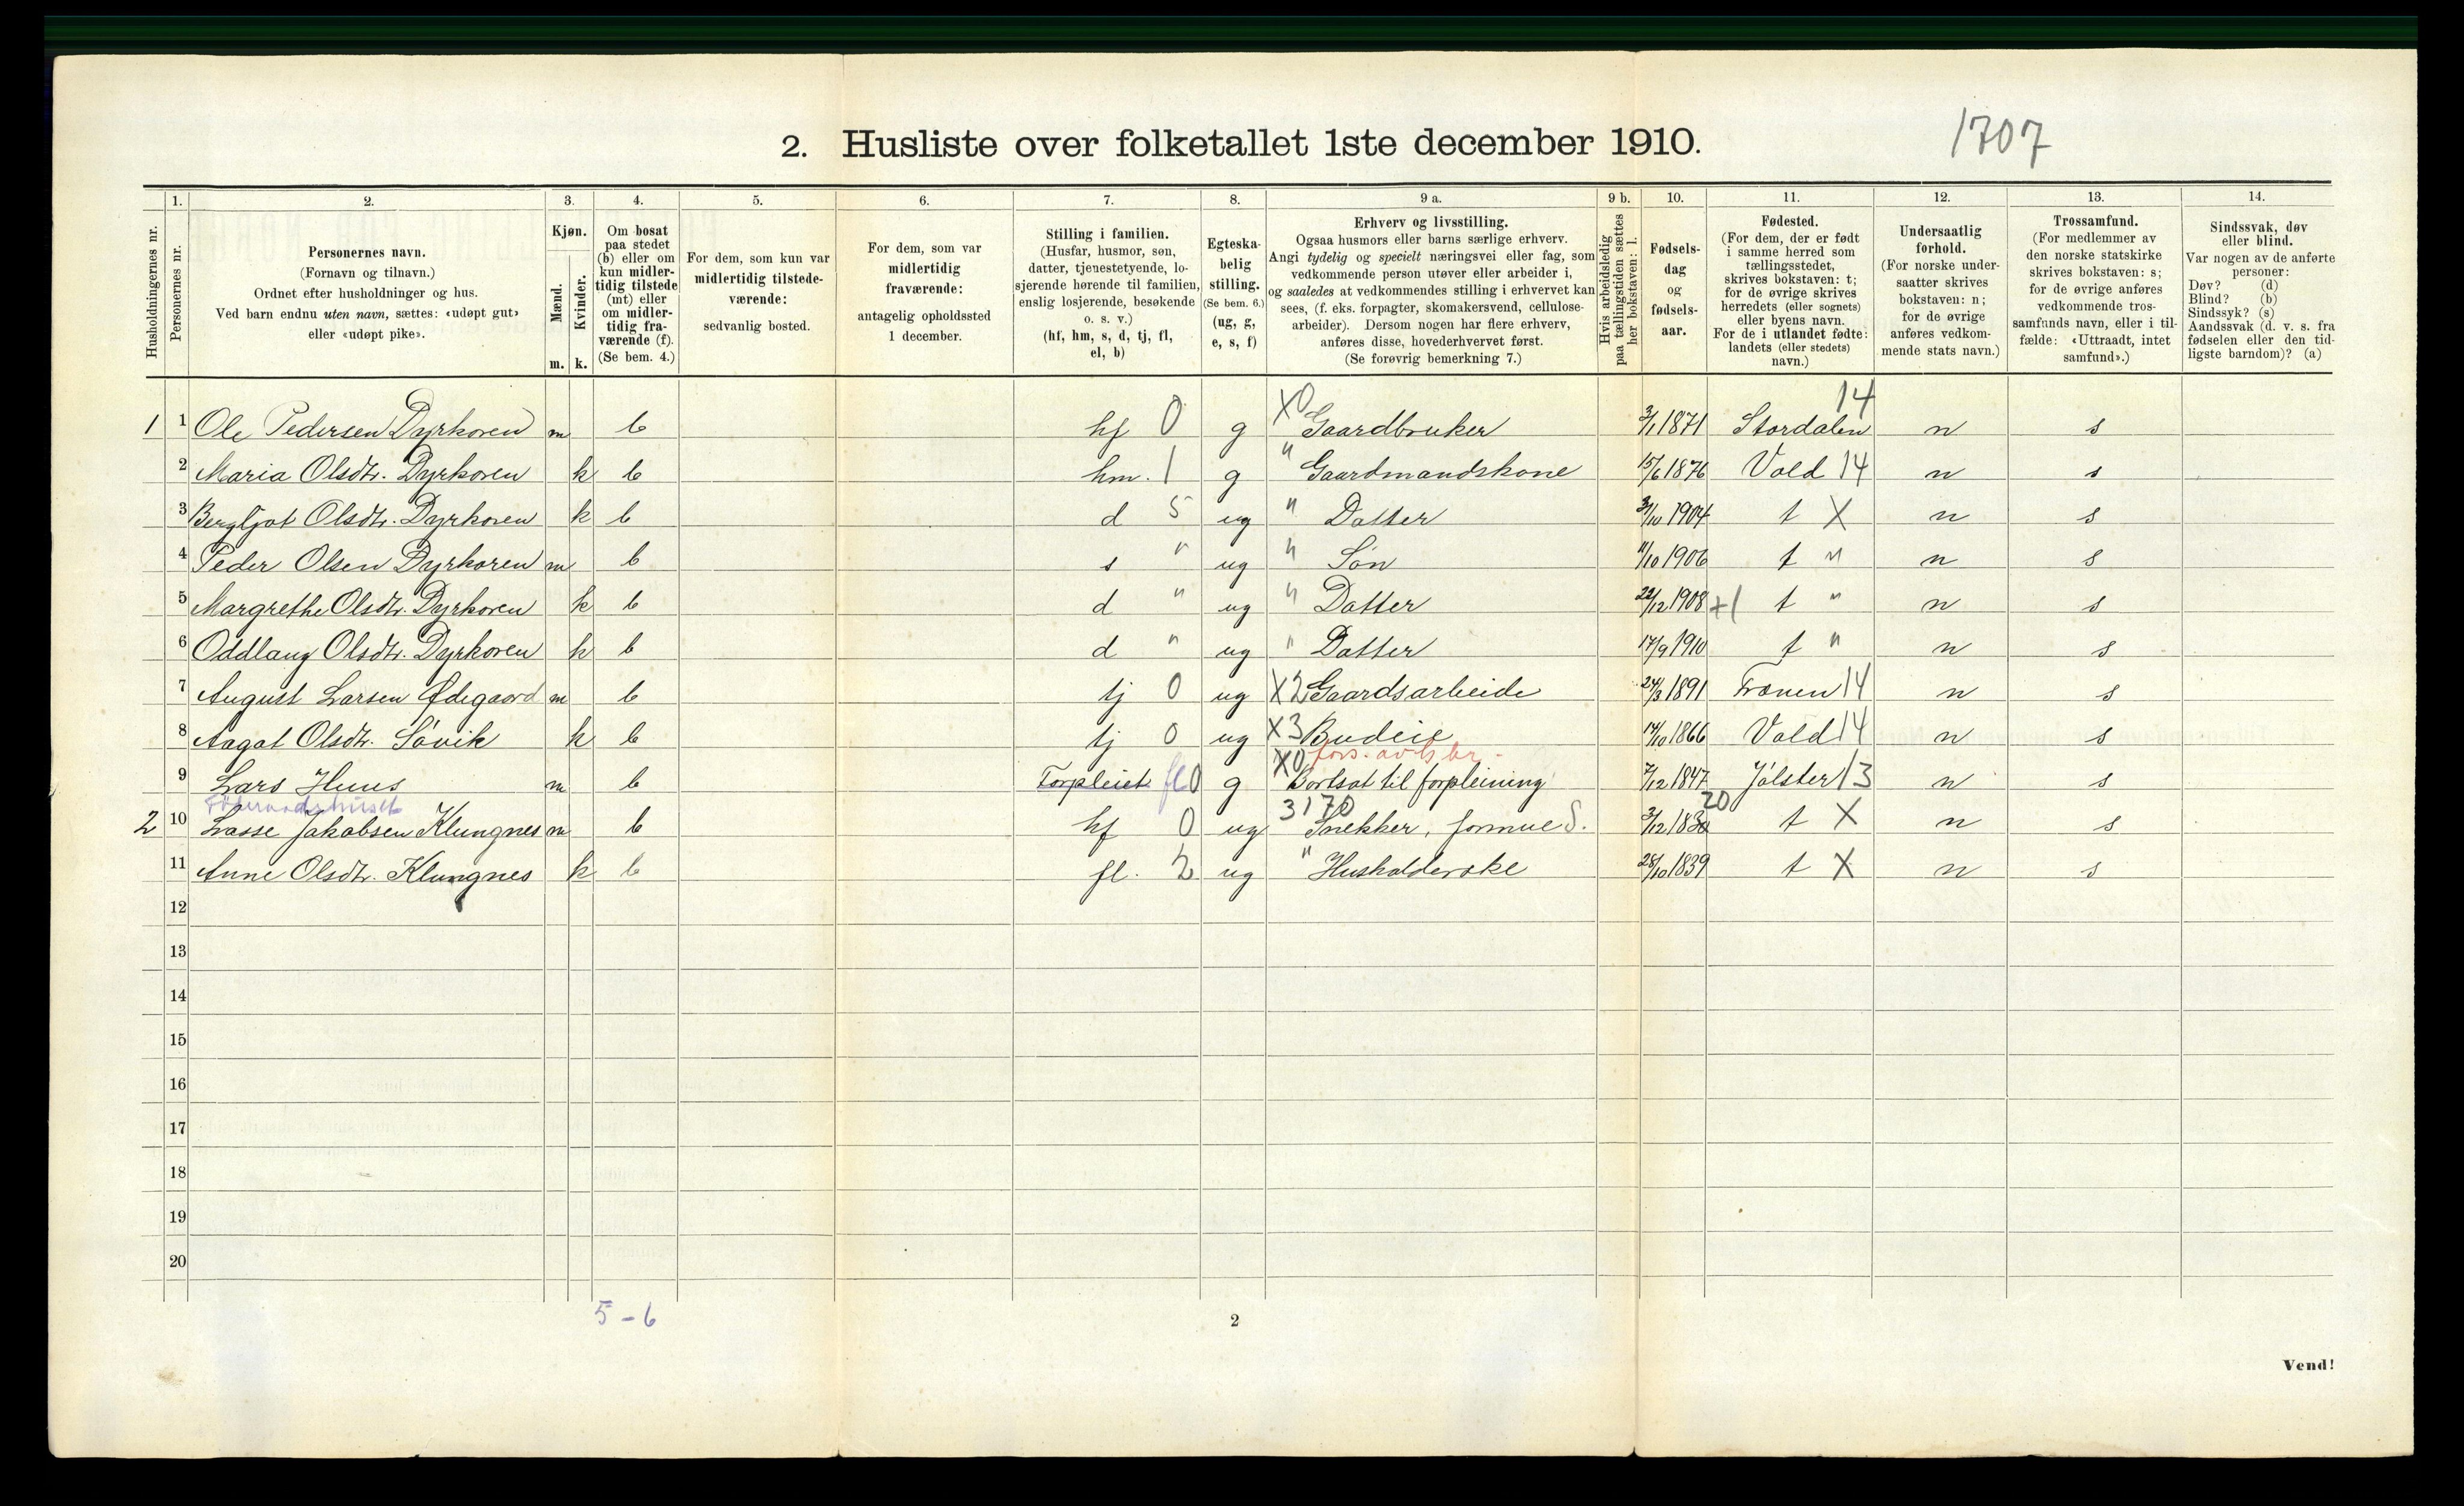 1707
2. Husliste over folketallet 1ste december 1910.
Husholdningernes nr.
1. Personernes nr.
2. Personernes navn.
(Fornavn og tilnavn.)
Ordnet efter husholdninger og hus.
Ved barn endnu uten navn, sættes: «udøpt gut»
eller «udøpt pike».
3. Kjøn.
Mænd. m.
Kvinder. k.
4. Om bosat
paa stedet
(b) eller om
kun midler-
tidig tilstede
(mt) eller
om midler-
tidig fra-
værende (f).
(Se bem. 4.)
5. For dem, som kun var
midlertidig tilstede-
værende:
sedvanlig bosted.
6. For dem, som var
midlertidig
fraværende:
antagelig opholdssted
1 december.
7. Stilling i familien.
(Husfar, husmor, søn,
datter, tjenestetyende, lo-
sjerende hørende til familien,
enslig losjerende, besøkende
o. s. v.)
(hf, hm, s, d, tj, fl,
el, b)
8. Egteska-
belig
stilling.
(Se bem. 6.)
(ug, g,
e, s, f)
9 a. Erhverv og livsstilling.
Ogsaa husmors eller barns særlige erhverv.
Angi tydelig og specielt næringsvei eller fag, som
vedkommende person utøver eller arbeider i,
og saaledes at vedkommendes stilling i erhvervet kan
sees, (f. eks. forpagter, skomakersvend, cellulose-
arbeider). Dersom nogen har flere erhverv,
anføres disse, hovederhvervet først.
(Se forøvrig bemerkning 7.)
9 b. Hvis arbeidsledig
paa tællingstiden sættes
her bokstaven: l.
10. Fødsels-
dag
og
fødsels-
aar.
11. Fødested.
(For dem, der er født
i samme herred som
tællingsstedet,
skrives bokstaven: t;
for de øvrige skrives
herredets (eller sognets)
eller byens navn.
For de i utlandet fødte:
landets (eller stedets)
navn.)
12. Undersaatlig
forhold.
(For norske under-
saatter skrives
bokstaven: n;
for de øvrige
anføres vedkom-
mende stats navn.)
13. Trossamfund.
(For medlemmer av
den norske statskirke
skrives bokstaven: s;
for de øvrige anføres
vedkommende tros-
samfunds navn, eller i til-
fælde: «Uttraadt, intet
samfund».)
14. Sindssvak, døv
eller blind.
Var nogen av de anførte
personer:
Døv? (d)
Blind? (b)
Sindssyk? (s)
Aandssvak (d. v. s. fra
fødselen eller den tid-
ligste barndom)? (a)
1 1 Ole Pedersen Dyrkoren m b hf 0 g X0 Gaardbruker 3/1 1871 Stordalen 14 n s
2 Maria Olsdtr. Dyrkoren k b hm. 1 g " Gaardmandskone 15/6 1876 Vold 14 n s
3 Bergljot Olsdtr. Dyrkoren k b d 5 ug " Datter 31/10 1904 t X n s
4 Peder Olsen Dyrkoren m b s " ug " Søn 11/10 1906 t " n s
5 Margrethe Olsdtr. Dyrkoren k b d " ug " Datter 22/12 1908 +1 t " n s
6 Oddlaug Olsdtr. Dyrkoren k b d " ug " Datter 17/9 1910 t " n s
7 August Larsen Ødegaard m b tj 0 ug X2 Gaardsarbeide 24/3 1891 Frænen 14 n s
8 Aagot Olsdtr. Søvik k b tj 0 ug X3 Budeie 14/10 1866 Vold 14 n s
9 Lars Huus m b Forpleiet fl 0 g X0 Bortsat til forpleining 7/12 1847 Jølster 13 n s
Føderaadshuset
2 10 Lasse Jakobsen Klungnes m b hf 0 ug 3170 Snekker, formue S. 3/12 1830 20 t X n s
11 Anne Olsdtr. Klungnes k b fl. 2 ug " Husholderske 28/10 1839 t X n s
12
13
14
15
16
17
18
19
20
5-6
2
Vend!